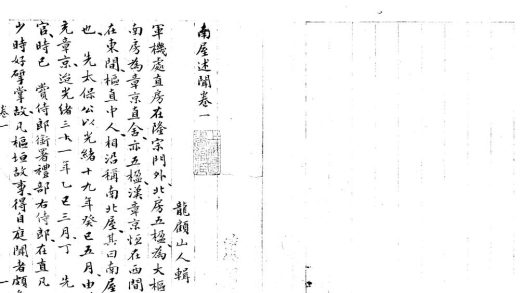 南屋述聞卷一
龍顧山人輯
軍機處直房在隆宗門外北房五楹為大樞
南房為章京直舍亦五楹漢章京恒在西間
在東間樞直中人相沿稱南北屋其曰南屋
也先太保公以光緒十九年癸巳五月由
充章京迨光緒三十一年乙巳三月丁先
官時已賞侍郎銜署禮部右侍郎在直凡
少時好掌故凡樞垣故事得自庭聞者頗
卷一
一